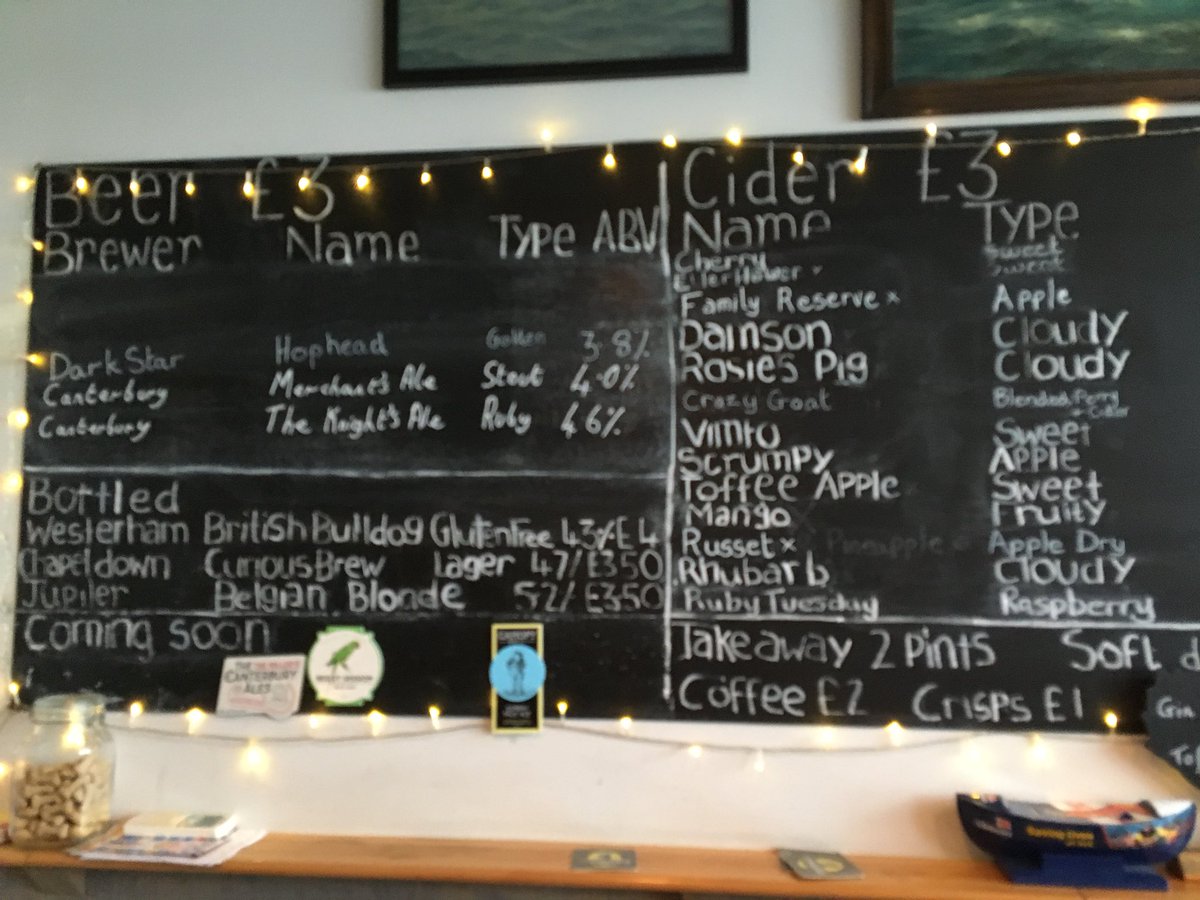 Beer £3
Brewer Name Type ABV
Dark Star Hophead Golden 3.8%
Canterbury Merchant's Ale Stout 4.0%
Canterbury The Knight's Ale Ruby 4.6%
Bottled
Westerham British Bulldog Gluten Free 4.3% £4
Chapel down Curious Brew Lager 4.7/ £3.50
Jupiler Belgian Blonde 5.2/ £3.50
Coming soon
THE
CANTERBURY
ALES
Cider £3
Name Type
Cherry Sweet
Elderflower Sweet
Family Reserve x Apple
Damson Cloudy
Rosies Pig Cloudy
Crazy Goat Blended Perry + Cider
Vimto Sweet
Scrumpy Apple
Toffee Apple Sweet
Mango Fruity
Russet x Pineapple Apple Dry
Rhubarb Cloudy
Ruby Tuesday Raspberry
Takeaway 2 Pints Soft d
Coffee £2 Crisps £1
Gin